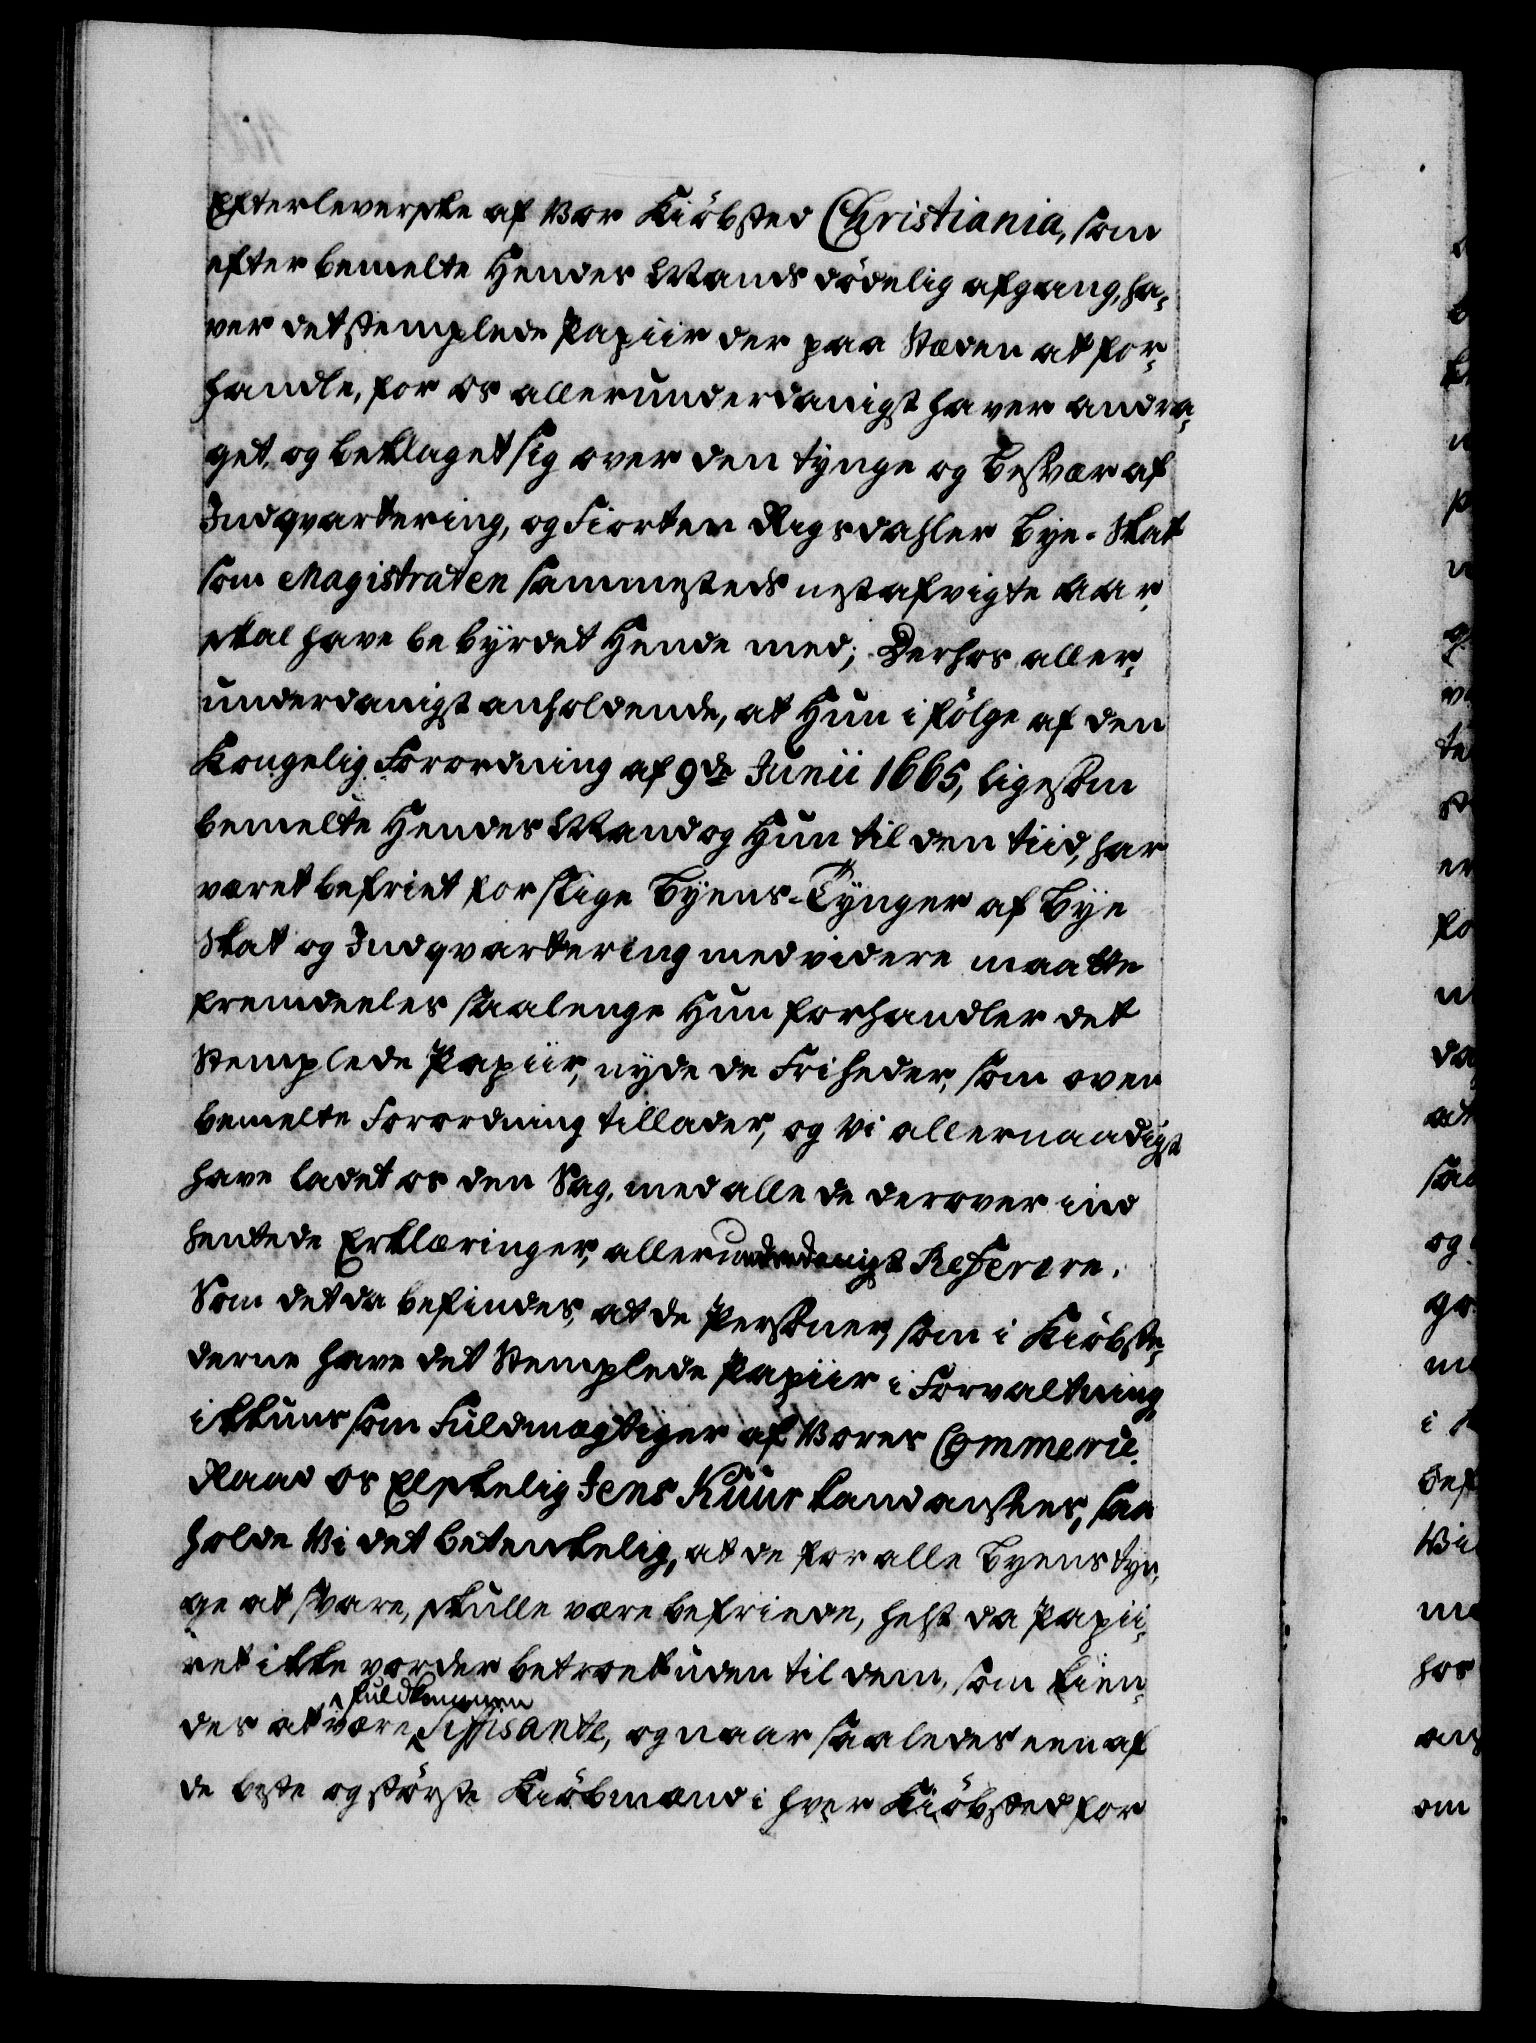 Efterleverske af Vor Kiöbsted Christiania, som
efter bemelte Hendes Mands dödelig afgang, ha-
ver det stemplede Papiir der paa Stæden at for-
handle, for os allerunderdanigst haver andra-
get, og beklaget sig over den tynge og besvær af
Indqvartering, og Fiorten Rigsdahler Bye-Skat
som Magistraten sammesteds nestafvigte Aar,
skal have bebyrdet Hende med; Derhos aller-
underdanigst anholdende, at Hun i fölge af den
Kongelig Forordning af 9de Junii 1665, ligesom
bemelte Hendes Mand og Hun til den tiid, har
været befriet for slige Byens-Tynger af Bye
Skat og Indqvartering med videre maatte
fremdeeles saalenge Hun forhandler det
Stemplede Papiir, nyde de Friheder, som oven
bemelte Forordning tillader, og Vi allernaadigst
have ladet os den Sag, med alle de derover ind
hentede Erklæringer, allerunderdanigst Referere.
Som det da befindes, at de Persohner, som i Kiöbstæ-
derne have det Stemplede Papiir i Forvaltning,
ikkuns som Fuldmægtiger af Vores Commerce
Raad os Elskelig Jens Kuur kand ansees, saa
holde Vi det betenkelig, at de for alle Byens tyn-
ge at svare, skulle være befriede, helst da Papii-
ret ikke vorder betroet uden til dem, som kien-
fuldkommen
des at være Suffisante, og naar saaledes een af
de beste og störste Kiöbmænd i hver Kiöbsted for